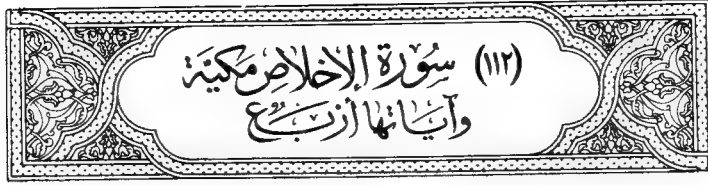 (١١٢) سُورَة الإخلاص مكيّة
وآيَاتها أرْبَع